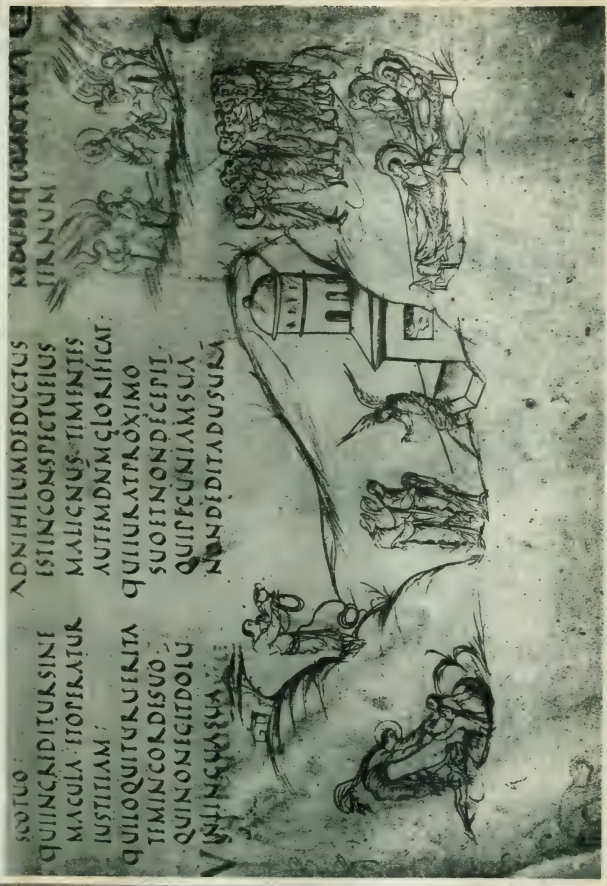 SCOTUO:
QUIINGREDITURSINE
MACULA ETOPERATUR
IUSTITIAM:
QUILOQUITURUERITA
TEMINCORDESUO
QUINONEGITDOLŪ
INLINGUASUA
ADNIHILUMDEDUCTUS
ESTINCONSPECTUEIUS
MALIGNUS·TIMENTES
AUTEMDNMGLORIFICAT:
QUIIURATPROXIMO
SUOETNONDECEPIT·
QUIPECUNIAMSUĀ
NONDEDITADUSURĀ
TERNUM: